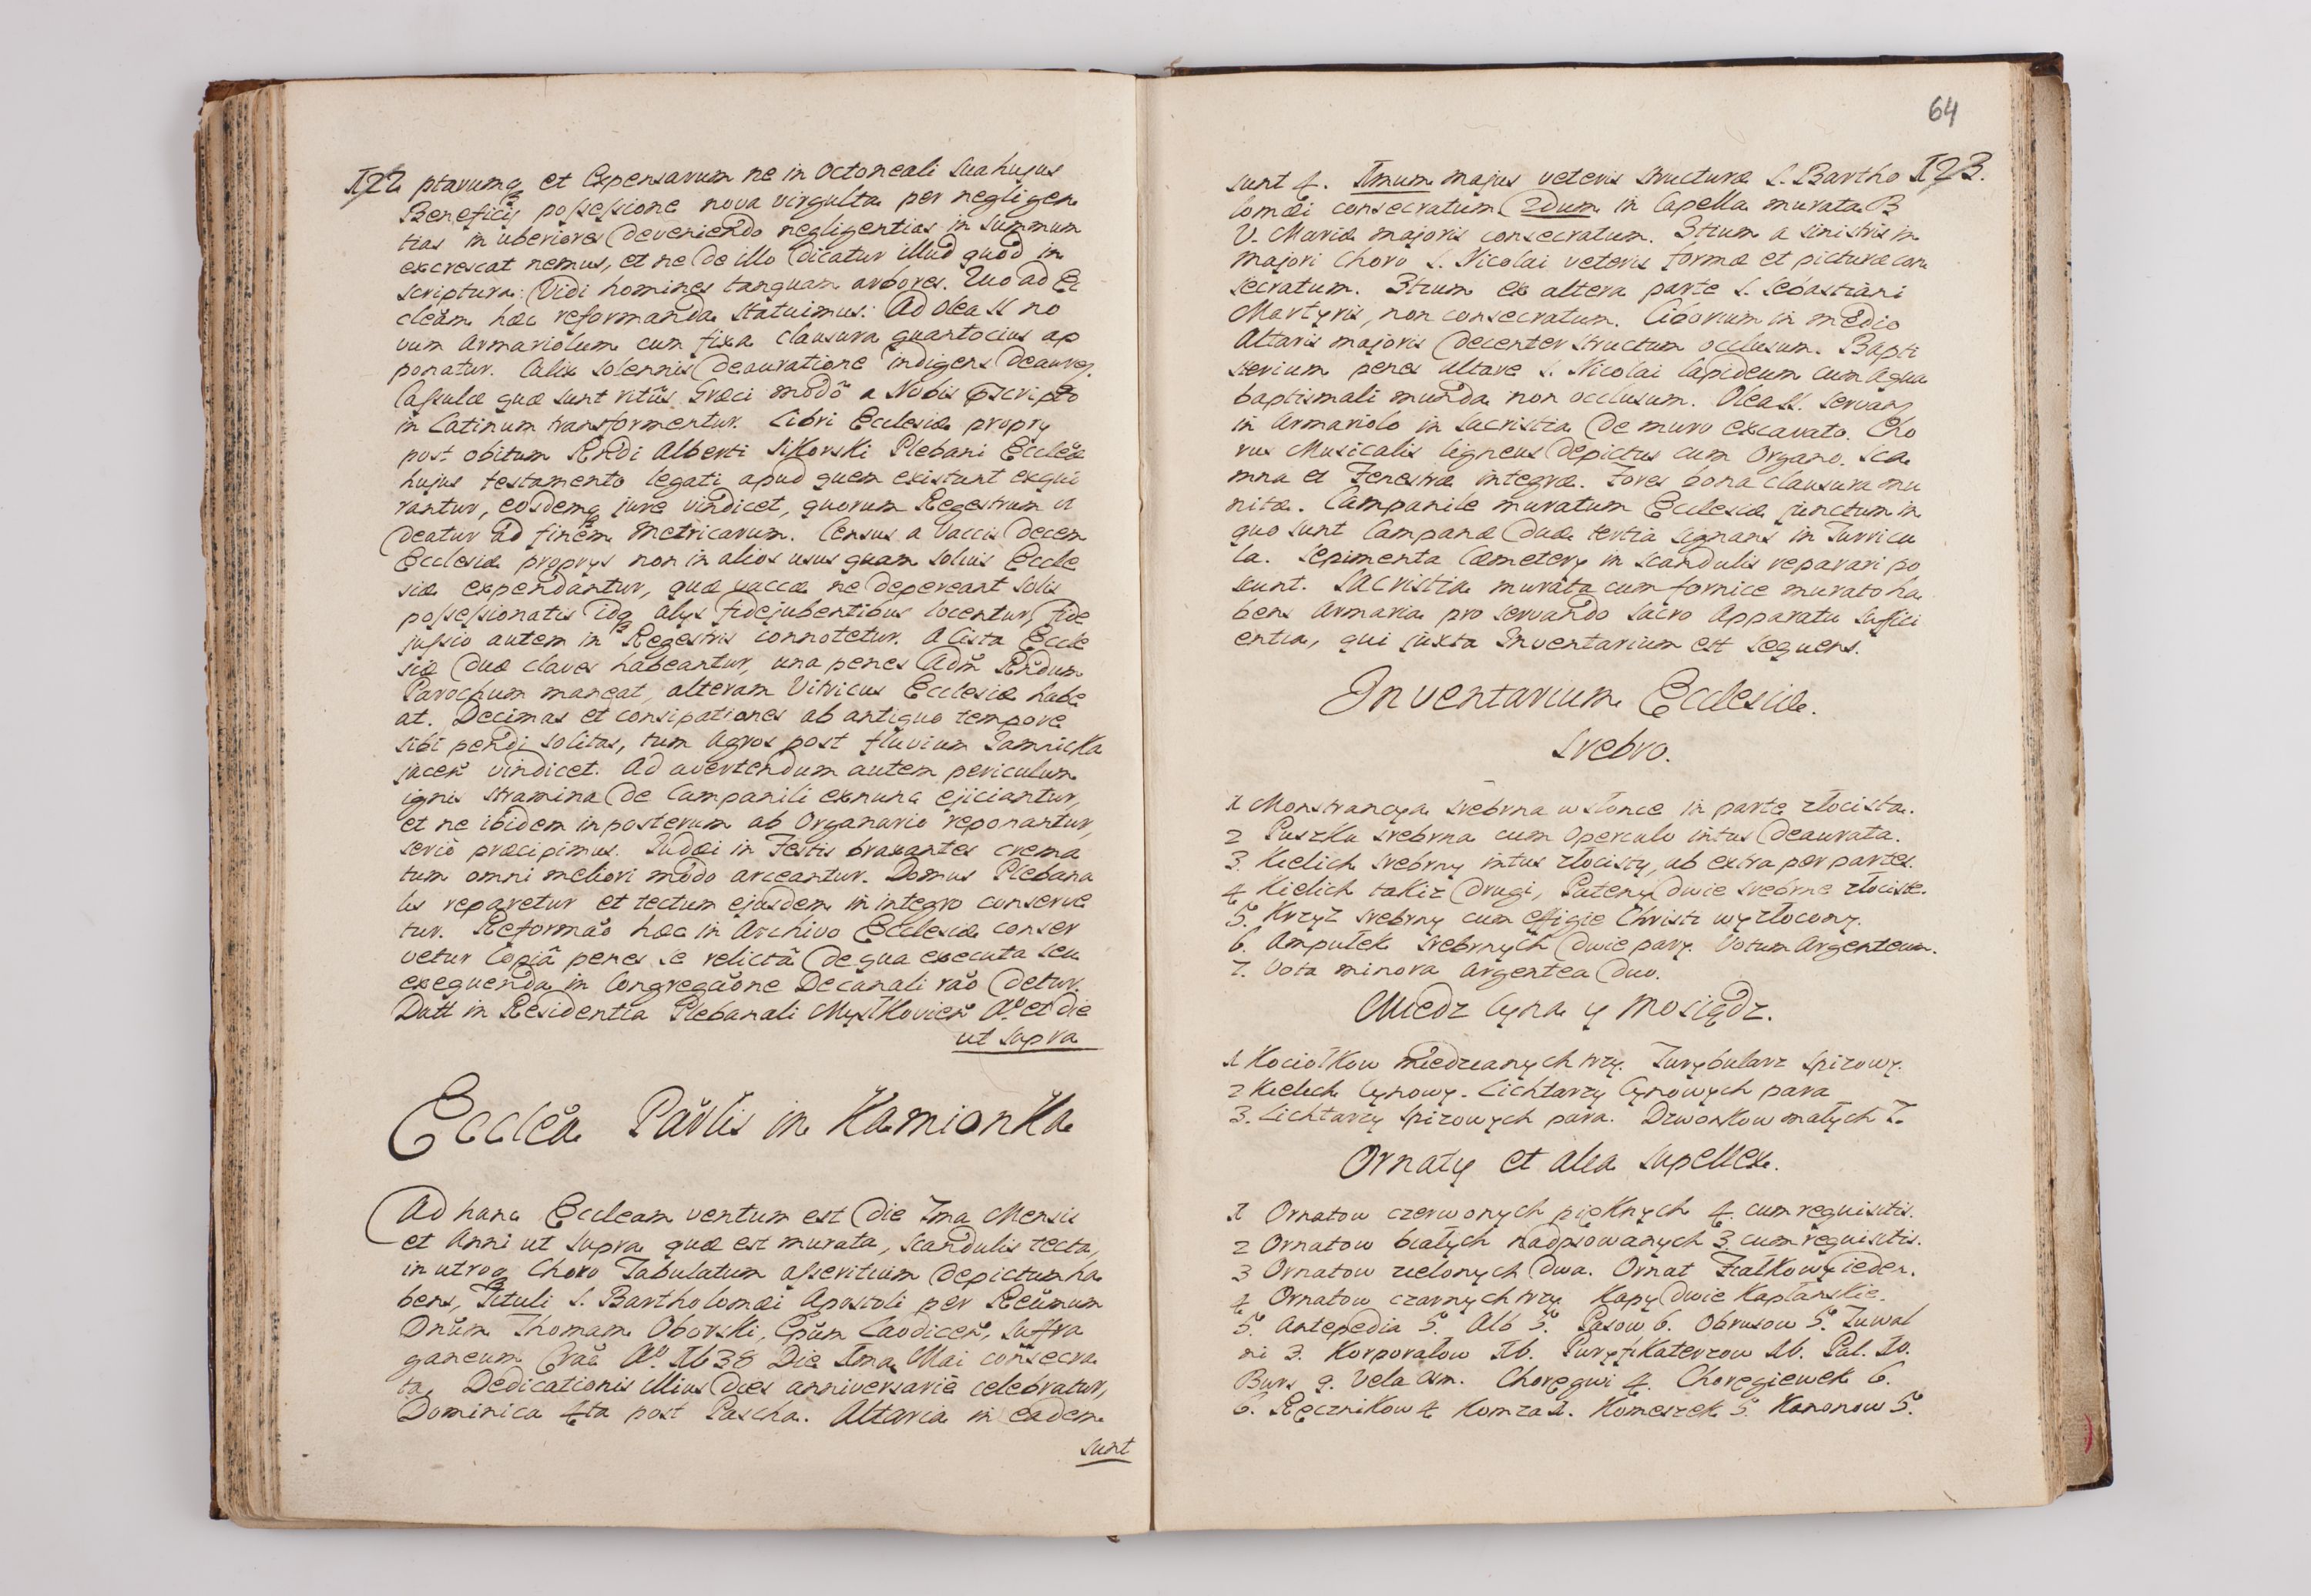 122 ptarumq et Expensarum ne in Octoneali sua hujus
Beneficij possessione nova virgulta per negligen
tias in uberiores deveniendo negligentias in summum
excrescat nemus, et ne de illo dicatur illud quod in
scriptura: Vidi homines tanquam arbores. Quo ad Ec
cleam hæc reformanda statuimus: Ad Olea SS no
vum Armariolum cum fixa clausura quantocius ap
ponatur. Calix solennis deauratione indigens deauretr
Casulæ quæ sunt ritus Græci modo a Nobis pscripto
in Latinum transformentur. Libri Ecclesiæ proprij
post obitum Rndi Alberti Sikorski Plebani Eccleæ
hujus testamento legati apud quem existunt exqui
rantur, eosdemq jure vindicet, quorum Regestrum vi
deatur ad finem Metricarum. Census a Vaccis decem
Ecclesiæ proprijs non in alios usus quam solius Eccle
siæ expendantur, quæ vaccæ ne depereant solis
possessionatis idq alijs fidejubentibus locentur, fide
jussio autem in Regestris connotetur. A Cista Eccle
siæ duæ claves habeantur, una penes Adm Rndum
Parochum maneat, alteram Vitricus Ecclesiæ habe
at. Decimas et consipationes ab antiquo tempore
sibi pendi solitas, tum Agros post fluvium Jamnicka
jacen vindicet. Ad avertendum autem periculum
ignis stramina de Campanili exnunc ejiciantur,
et ne ibidem inposterum ab Organario reponantur,
serio præcipimus. Judæi in Festis braxantes crema
tum omni meliori modo arceantur. Domus Plebana
lis reparetur et tectum ejusdem in integro conserve
tur. Reformao hæc in Archivo Ecclesiæ conser
vetur Copiâ penes se relictâ de qua executa seu
exequenda in Congregaone Decanali rao detur.
Datt in Residentia Plebanali Myslkovien Ao et die
ut supra
Ecclea Parlis in Kamionka
Ad hanc Eccleam ventum est die Ima Mensis
et Anni ut supra quæ est murata, scandulis tecta,
in utroq Choro Tabulatum asseritium depictum ha
bens, Tituli S. Bartholomæi Apostoli per Reumum
Dnum Thomam Oborski, Epum Laodicen, Suffra
ganeum Crac Ao 1638 Die 1ma Mai consecra
ta. Dedicationis illius dies anniversarie celebratur,
Dominica 4ta post Pascha. Altaria in eadem
sunt
64
sunt 4. Imum majus veteris structuræ S. Bartho 123.
lomæi consecratum 2dum in Capella murata B
V. Mariæ majoris consecratum. 3tium a sinistris in
majori Choro S. Nicolai veteris formæ et picturæ con
secratum. 3tium ex altera parte S. Sebastiani
Martyris, non consecratum. Ciborium in medio
Altaris majoris decenter structum occlusum. Bapti
sterium penes altare S. Nicolai lapideum cum Aqua
baptismali munda non occlusum. Olea SS. servantr
in Armariolo in Sacristia de muro excavato. Cho
rus Musicalis ligneus depictus cum Organo. Sca
mna et Fenestræ integræ. Fores bona clausura mu
nitæ. Campanile muratum Ecclesiæ junctum in
quo sunt Campanæ duæ tertia signans in Turricu
la. Sepimenta Cæmeterij in scandulis reparari po
scunt. Sacristia murata cum fornice murato ha
bens Armaria pro servando sacro Apparatu suffici
entia, qui juxta Inventarium est sequens.
Inventarium Ecclesiæ.
Srebro.
1 Monstrancya srebrna w słonce in parte złocista.
2 Puszka srebrna cum Operculo intus deaurata.
3. Kielich srebrny intus złocisty, ab extra per partes.
4 Kielich takiz drugi, Pateny dwie srebrne złociste.
5. Krzyż srebrny cum effigie Christi wyzłocony.
6. Ampułek srebrnych dwie pary. Votum Argenteum.
7. Vota minora Argentea duo.
Miedz Cyna y Mosiądz.
1 Kociołkow miedzianych trzy. Turybularz spizowy.
2 Kielich Cynowy. Lichtarzy Cynowych para
3. Lichtarzy spizowych para. Dzwonkow małych 7.
Ornaty et alia supellex.
1 Ornatow czerwonych pięknych 4. cum requisitis.
2 Ornatow białych nadpsowanych 3 cum requisitis.
3 Ornatow zielonych dwa. Ornat Fiałkowy ieden.
4 Ornatow czarnych trzy Kapy dwie Kapłańskie.
5. Antepedia 5. Alb 5. Pasow 6. Obrusow 5. Tuwal
ni 3. Korporałow 16. Puryfikaterzow 16. Pal. 10.
Burs 9. Vela osm. Choręgwi 4. Choręgiewek 6.
6. Ręcznikow 4 Komza 1. Komeszek 5. Kanonow 5.